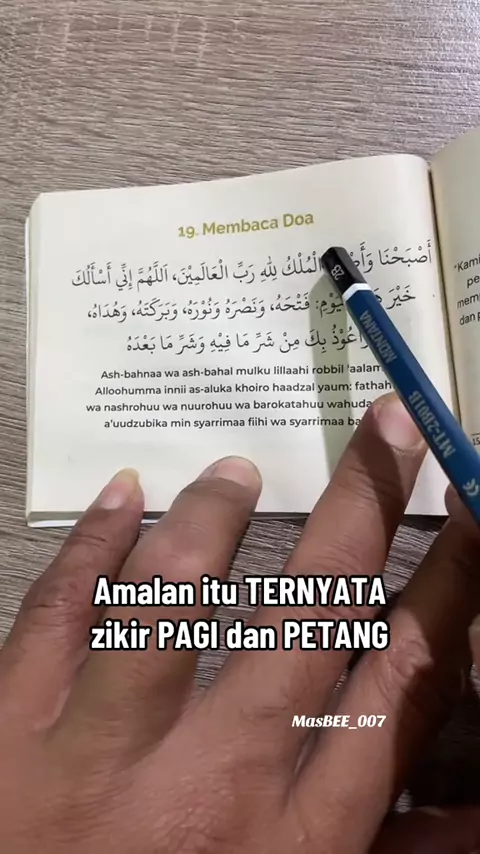 19. Membaca Doa
أَصْبَحْنَا الْمُلْكُ لِلهِ رَبِّ الْعَالَمِيْنَ، اَللّٰهُمَّ إِنِّيْ أَسْأَلُكَ
خَيْرَ فَتْحَهُ، وَنَصْرَهُ وَنُوْرَهُ، وَبَرَكَتَهُ، وَهُدَاهُ،
بِكَ مِنْ شَرِّ مَا فِيْهِ وَشَرِّ مَا بَعْدَهُ
Ash-bahnaa wa ash-bahal mulku lillaahi robbil 'aalam
Alloohumma innii as-aluka khoiro haadzal yaum: fathah
wa nashrohuu wa nuurohuu wa barokatahuu wahuda
a'uudzubika min syarrimaa fiihi wa syarrimaa ba
"Kami
pe
mem
dan p
15
2B
MONTANA
MT-2B01B
CE
Amalan itu TERNYATA
zikir PAGI dan PETANG
MasBEE_007